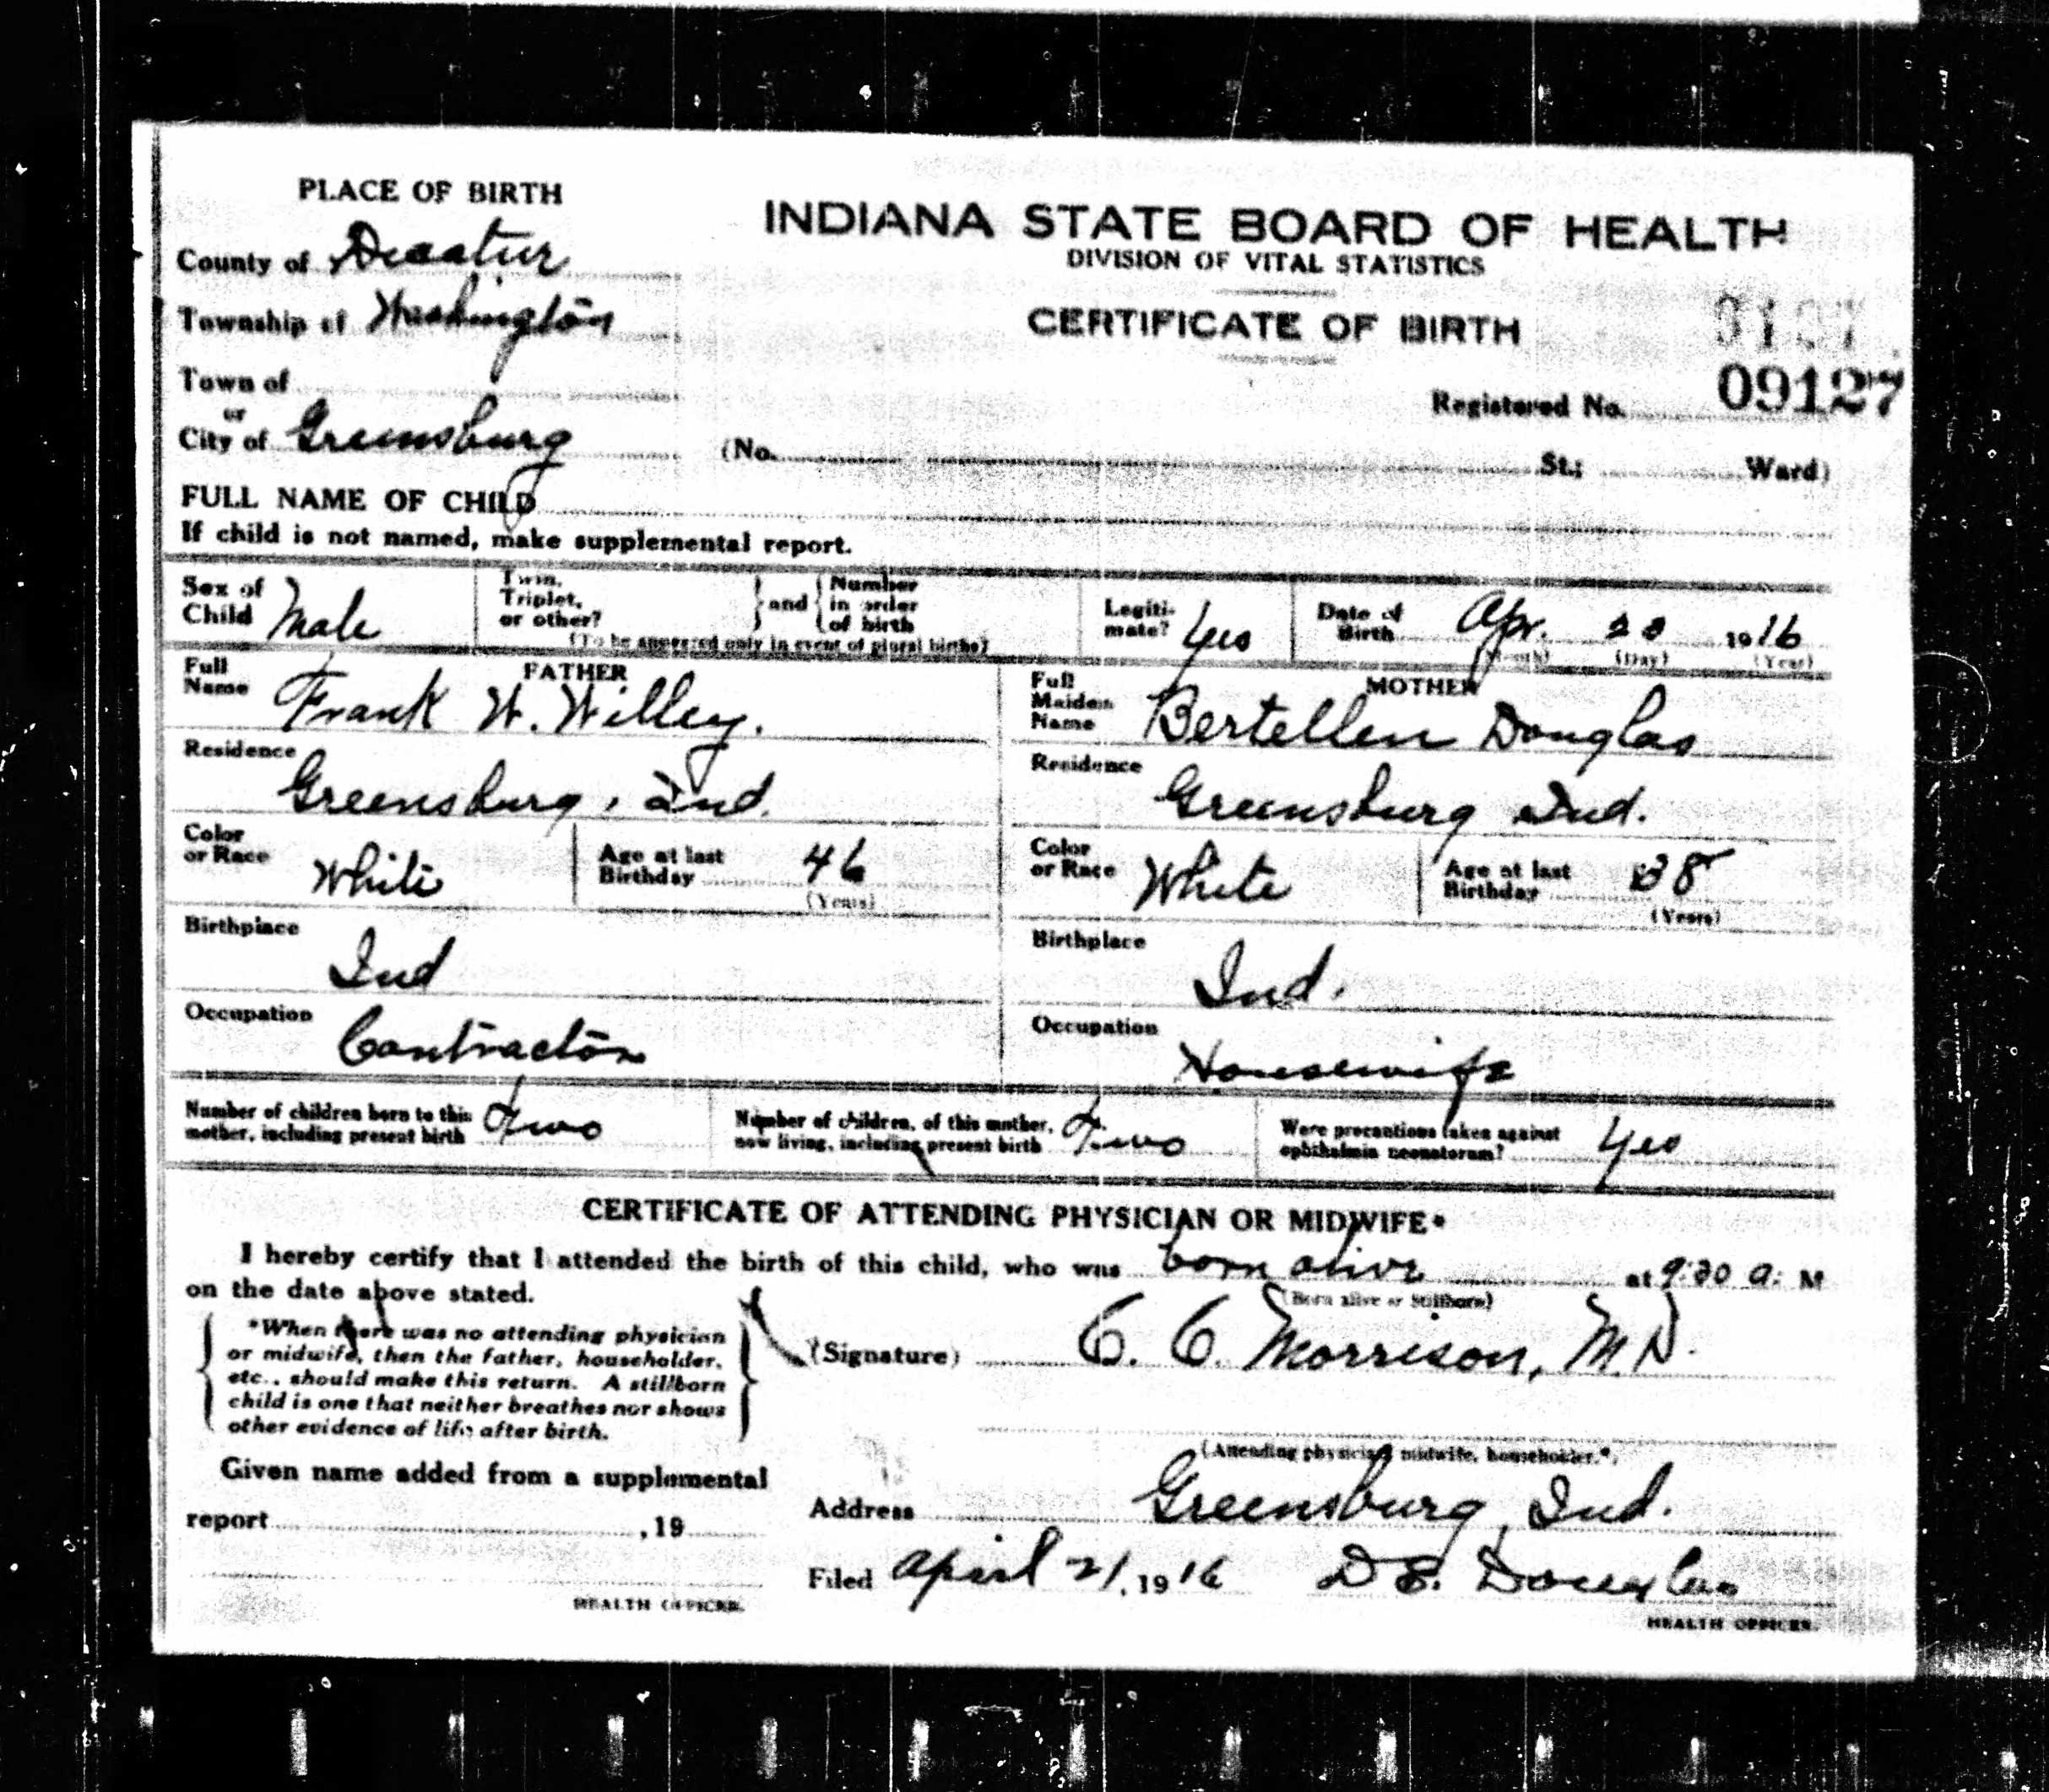 PLACE OF BIRTH
INDIANA STATE BOARD OF HEALTH
DIVISION OF VITAL STATISTICS
CERTIFICATE OF BIRTH
County of Decatur
Township of Washington
Town of
or
City of Greensburg
Registered No. 09127
(No. St.; Ward)
FULL NAME OF CHILD
If child is not named, make supplemental report.
Sex of Child Male
Twin, Triplet, or other? } and { Number in order of birth
(To be answered only in event of plural births)
Legitimate? Yes
Date of Birth Apr. 20 1916
(Month) (Day) (Year)
FATHER
Full Name Frank W. Willey.
MOTHER
Full Maiden Name Bertellen Douglas
Residence
Greensburg, Ind.
Residence
Greensburg Ind.
Color or Race White
Age at last Birthday 46
(Years)
Color or Race White
Age at last Birthday 38
(Years)
Birthplace
Ind
Birthplace
Ind.
Occupation
Contractor
Occupation
Housewife
Number of children born to this mother, including present birth Two
Number of children, of this mother, now living, including present birth Two
Were precautions taken against ophthalmia neonatorum? Yes
CERTIFICATE OF ATTENDING PHYSICIAN OR MIDWIFE*
I hereby certify that I attended the birth of this child, who was born alive at 9:30 a. M
on the date above stated.
(Born alive or Stillborn)
*When there was no attending physician
or midwife, then the father, householder,
etc., should make this return. A stillborn
child is one that neither breathes nor shows
other evidence of life after birth.
(Signature) C. C. Morrison, M.D.
(Attending physician, midwife, householder.*)
Given name added from a supplemental
report , 19
HEALTH OFFICER.
Address Greensburg, Ind.
Filed April 21, 1916 D E. Douglas
HEALTH OFFICER.